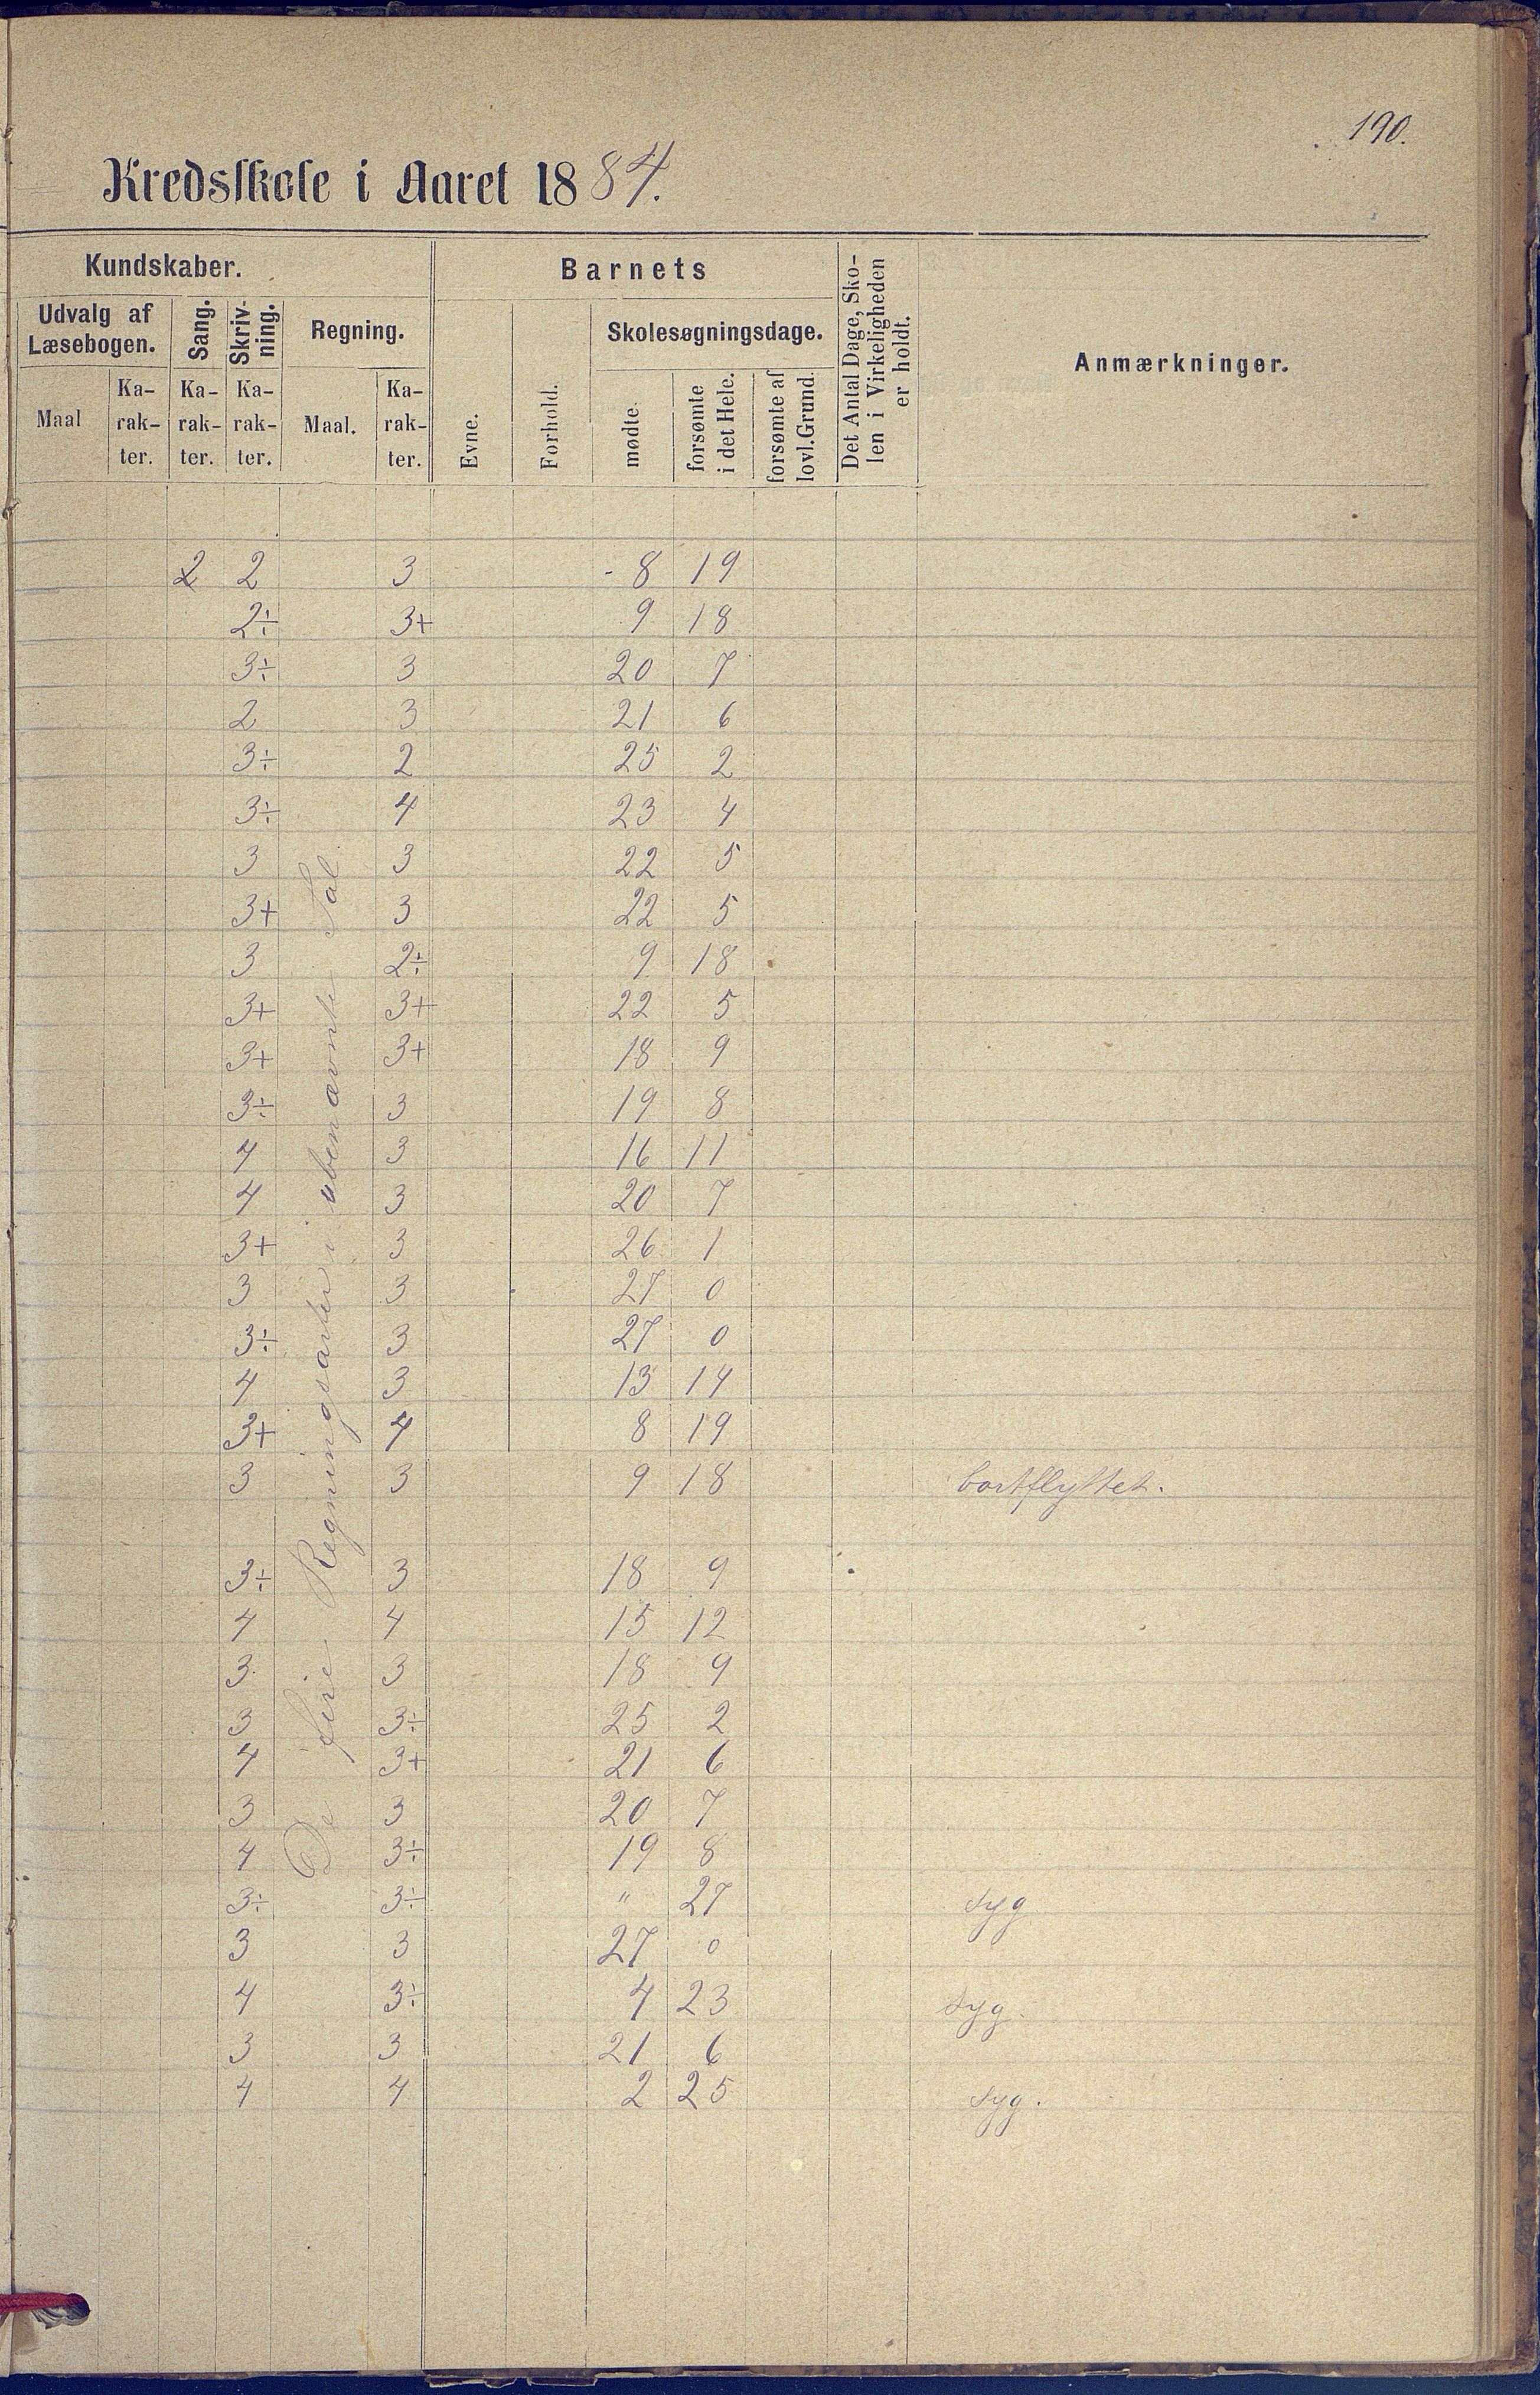 190.
Kredsskole i Aaret 1884.
Kundskaber.
Barnets
Det Antal Dage, Sko-
len i Virkeligheden
er holdt.
Anmærkninger.
Udvalg af
Læsebogen.
Sang.
Skriv-
ning.
Regning.
Skolesøgningsdage.
Maal
Ka-
rak-
ter.
Ka-
rak-
ter.
Ka-
rak-
ter.
Maal.
Ka-
rak-
ter.
Evne.
Forhold.
mødte.
forsømte
i det Hele.
forsømte af
lovl. Grund.
De fire Regningsarter i ubenævnte Tal.
2 2 3 - 8 19
2÷ 3+ 9 18
3÷ 3 20 7
2 3 21 6
3÷ 2 25 2
3÷ 4 23 4
3 3 22 5
3+ 3 22 5
3 2÷ 9 18
3+ 3+ 22 5
3+ 3+ 18 9
3÷ 3 19 8
4 3 16 11
4 3 20 7
3+ 3 26 1
3 3 27 0
3÷ 3 27 0
4 3 13 14
3+ 4 8 19
3 3 9 18 bortflyttet.
3÷ 3 18 9
4 4 15 12
3 3 18 9
3 3÷ 25 2
4 3+ 21 6
3 3 20 7
4 3÷ 19 8
3÷ 3÷ " 27 syg
3 3 27 0
4 3÷ 4 23 syg.
3 3 21 6
4 4 2 25 syg.